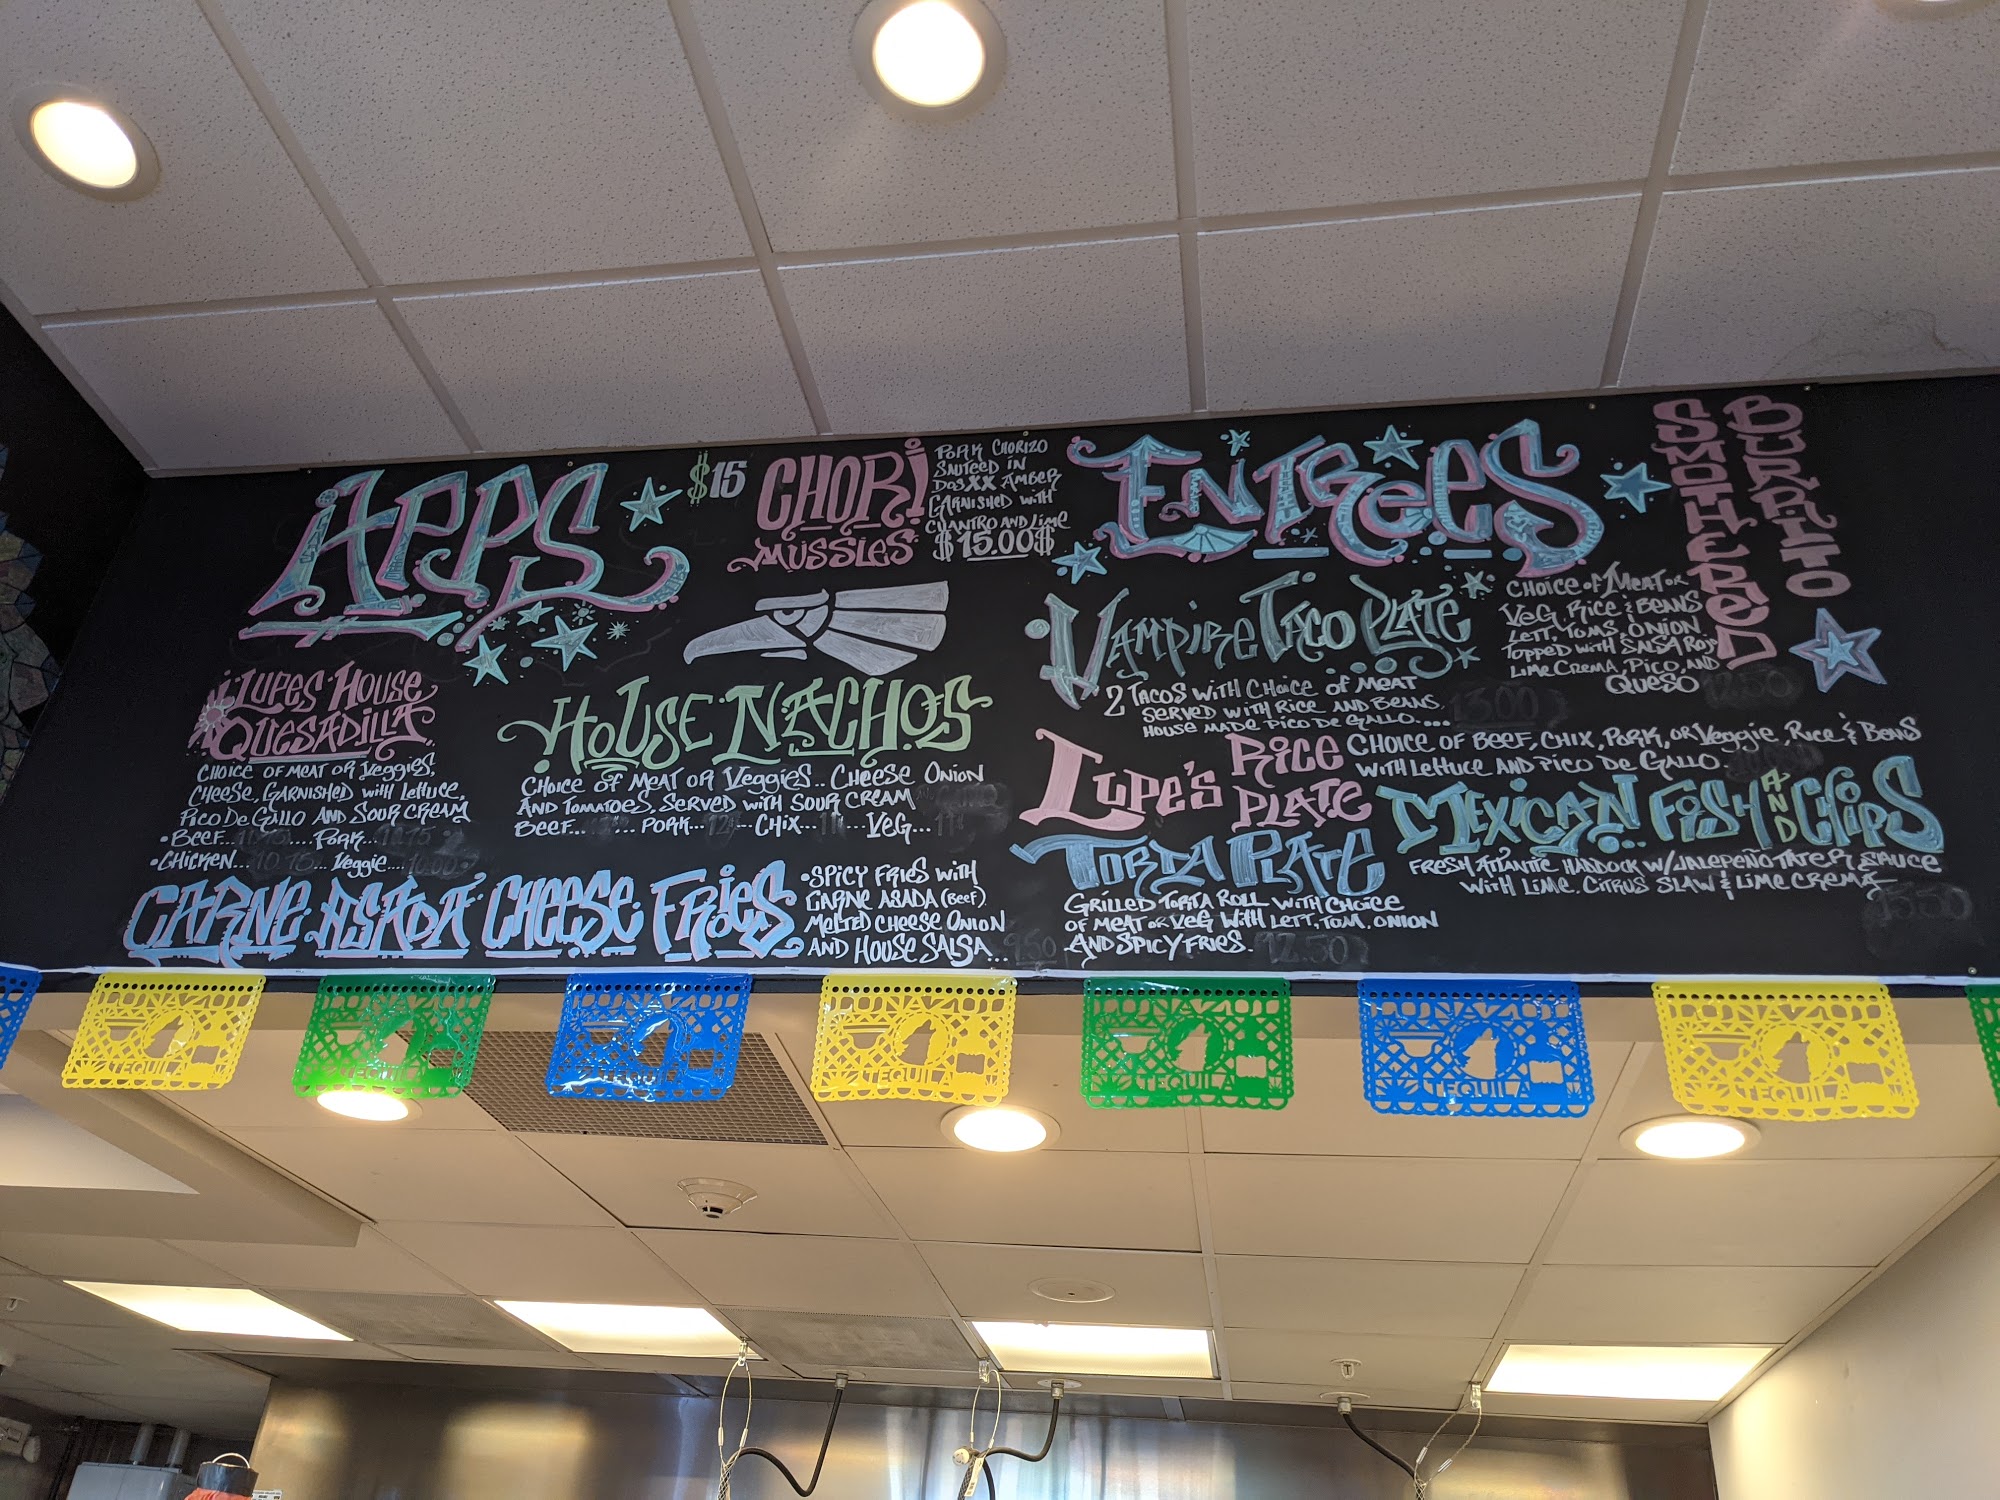 APPS
$15
CHORI
MUSSLES
PORK CHORIZO
SAUTEED IN
DOS XX AMBER
GARNISHED WITH
CILANTRO AND LIME
$15.00$
LUPES HOUSE
QUESADILLA
CHOICE OF MEAT OR VEGGIES,
CHEESE, GARNISHED WITH LETTUCE,
PICO DE GALLO AND SOUR CREAM
• BEEF... .... PORK...
• CHICKEN... 10.75... VEGGIE.... 10.00
HOUSE NACHOS
CHOICE OF MEAT OR VEGGIES.. CHEESE ONION
AND TOMATOES, SERVED WITH SOUR CREAM
BEEF... ... PORK... ... CHIX... ... VEG...
CARNE ASADA CHEESE FRIES
• SPICY FRIES WITH
CARNE ASADA (BEEF)
MELTED CHEESE ONION
AND HOUSE SALSA... 9.50
ENTREES
VAMPIRE TACO PLATE
2 TACOS WITH CHOICE OF MEAT
SERVED WITH RICE AND BEANS.
HOUSE MADE PICO DE GALLO.... 13.00
SMOTHERED
BURRITO
CHOICE OF MEAT OR
VEG, RICE & BEANS
LETT, TOMS & ONION
TOPPED WITH SALSA ROJA
LIME CREMA, PICO, AND
QUESO 12.50
LUPE'S RICE
PLATE
CHOICE OF BEEF, CHIX, PORK, OR VEGGIE, RICE & BEANS
WITH LETTUCE AND PICO DE GALLO.
TORTA PLATE
GRILLED TORTA ROLL WITH CHOICE
OF MEAT OR VEG WITH LETT, TOM, ONION
AND SPICY FRIES. 12.50
MEXICAN FISH AND CHIPS
FRESH ATLANTIC HADDOCK W/ JALEPEÑO TATER SAUCE
WITH LIME. CITRUS SLAW & LIME CREMA
15.50
TEQUILA
TEQUILA
TEQUILA
TEQUILA
TEQUILA
TEQUILA